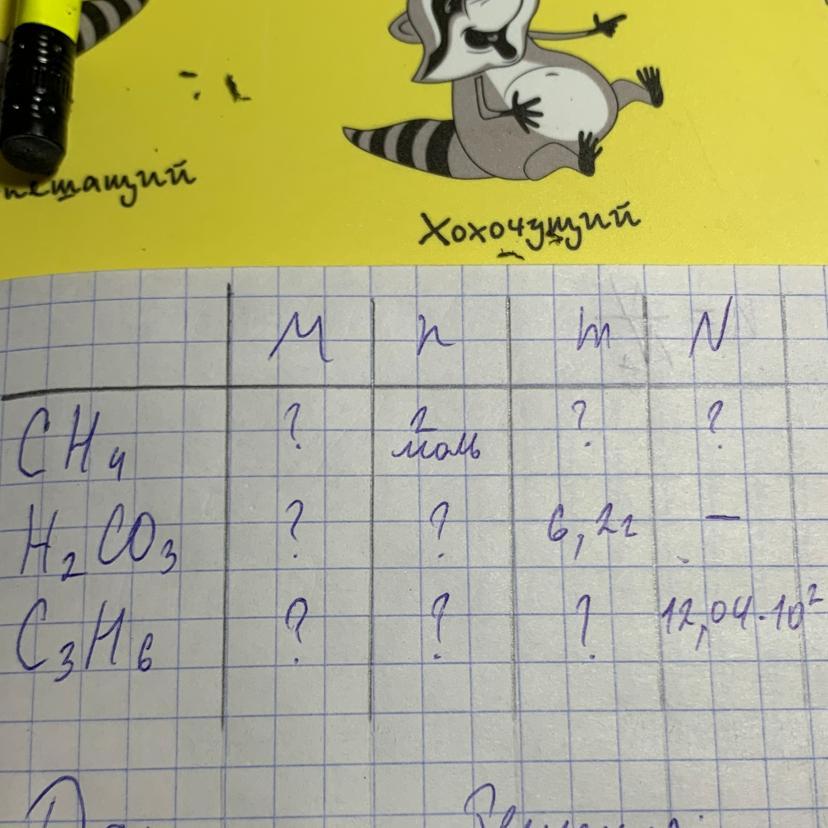 Хохочущий
M n m N
CH₄ ? 2 моль ? ?
H₂CO₃ ? ? 6,2г —
C₃H₆ ? ? ? 12,04·10²